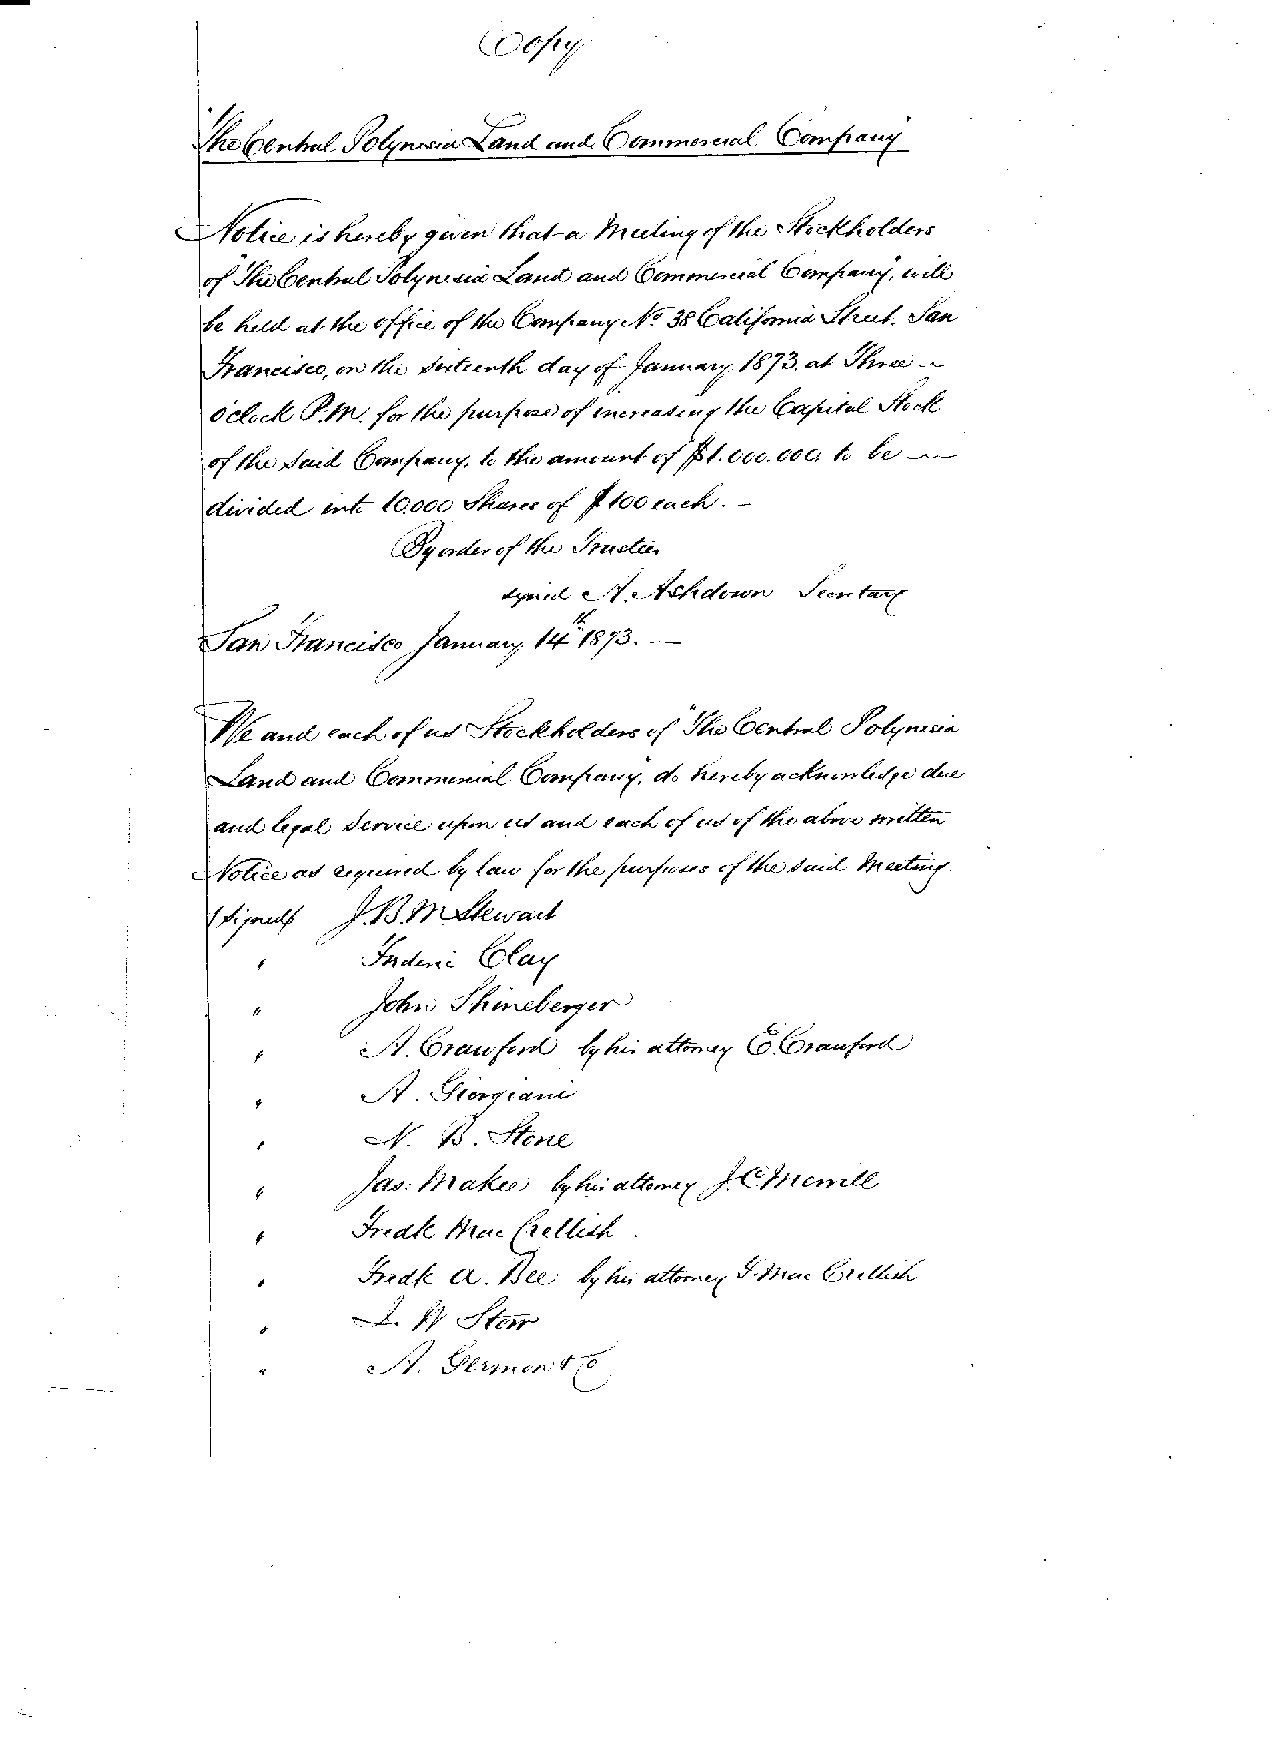 Copy
"The Central Polynesia Land and Commercial Company"
Notice is hereby given that a Meeting of the Stockholders
of "The Central Polynesia Land and Commercial Company", will
be held at the office of the Company No 38 California Street, San
Francisco, on the sixteenth day of January 1873, at Three —
o'clock P.M. for the purpose of increasing the Capital Stock
of the said Company, to the amount of $1.000.000, to be —
divided into 10.000 Shares of $100 each. —
By order of the Trustees
signed A. Ashdown Secretary
San Francisco January 14th 1873. —
We and each of us Stockholders of "The Central Polynesia
Land and Commercial Company", do hereby acknowledge due
and legal service upon us and each of us of the above written
Notice as required by law for the purposes of the said Meeting.
(Signed) J.B.M Stewart
" Frederic Clay
" John Shineberger
" A. Crawford by his attorney E. Crawford
" A. Giorgiani
" N. B. Stone
" Jas. Makee by his attorney J.C Merrill
" Fredk Mac Crellish
" Fredk A. Bee by his attorney F. Mac Crellish
" L. W Storr
" A. Germon & Co